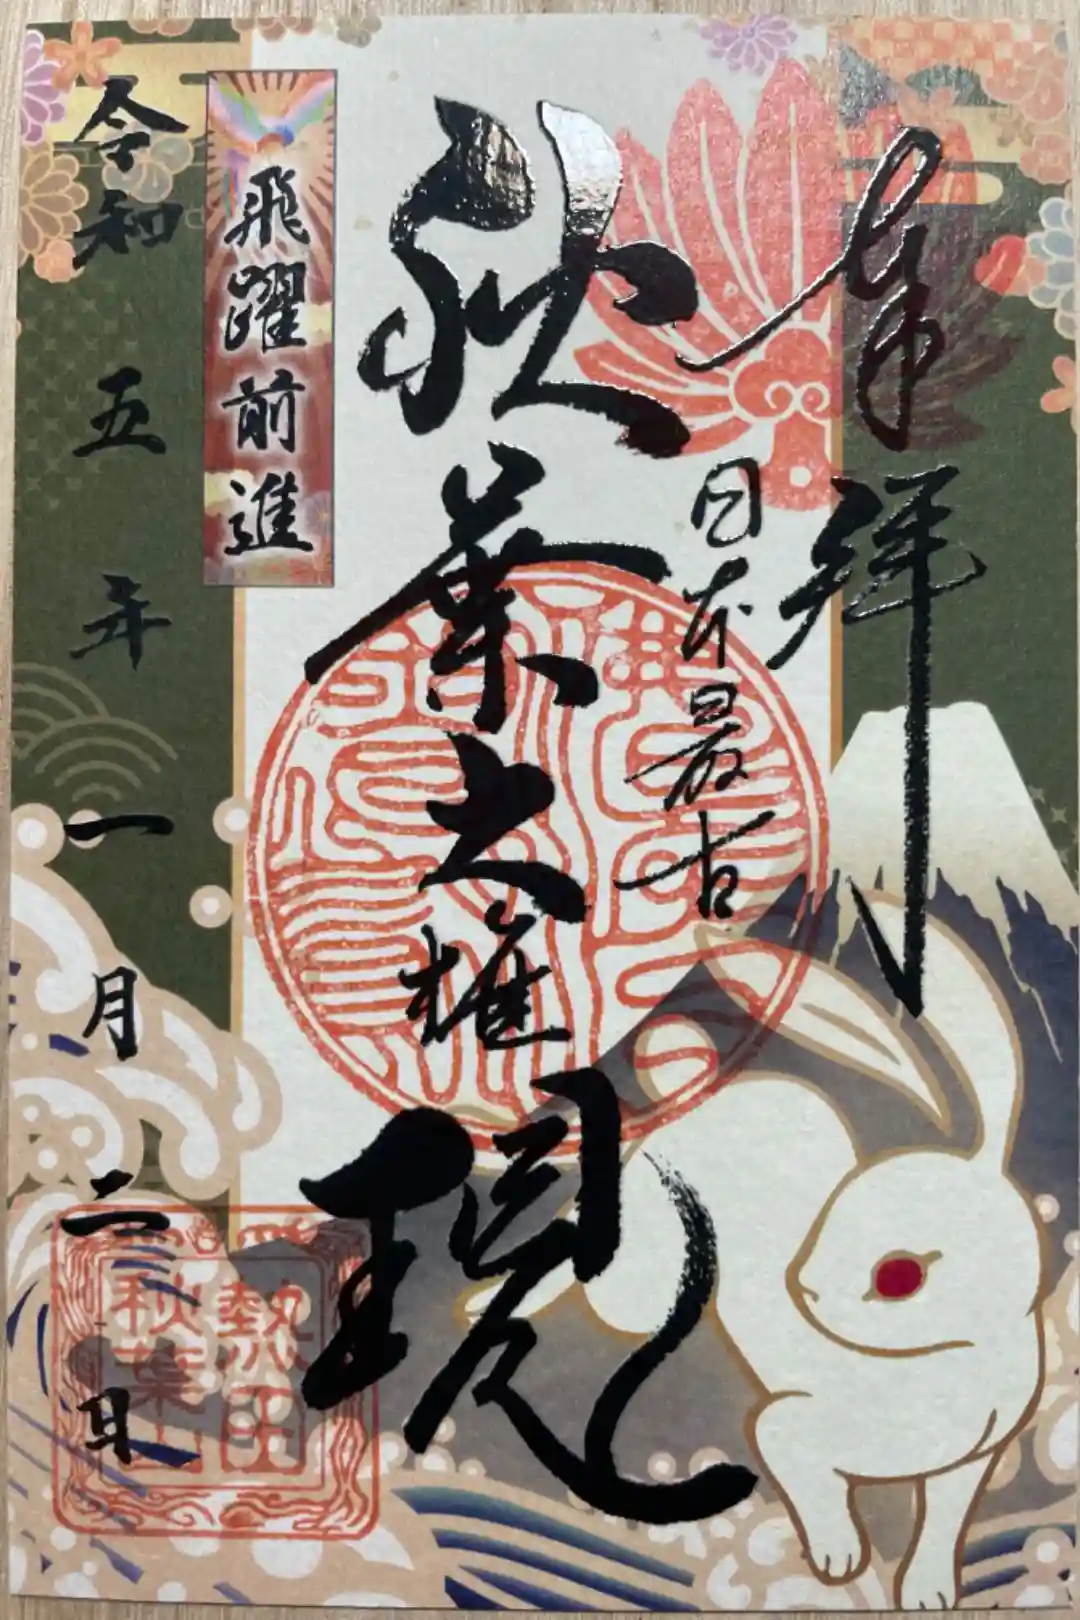 奉拝
日本最古
秋葉大権現
飛躍前進
令和五年一月二日
熱田
秋葉山